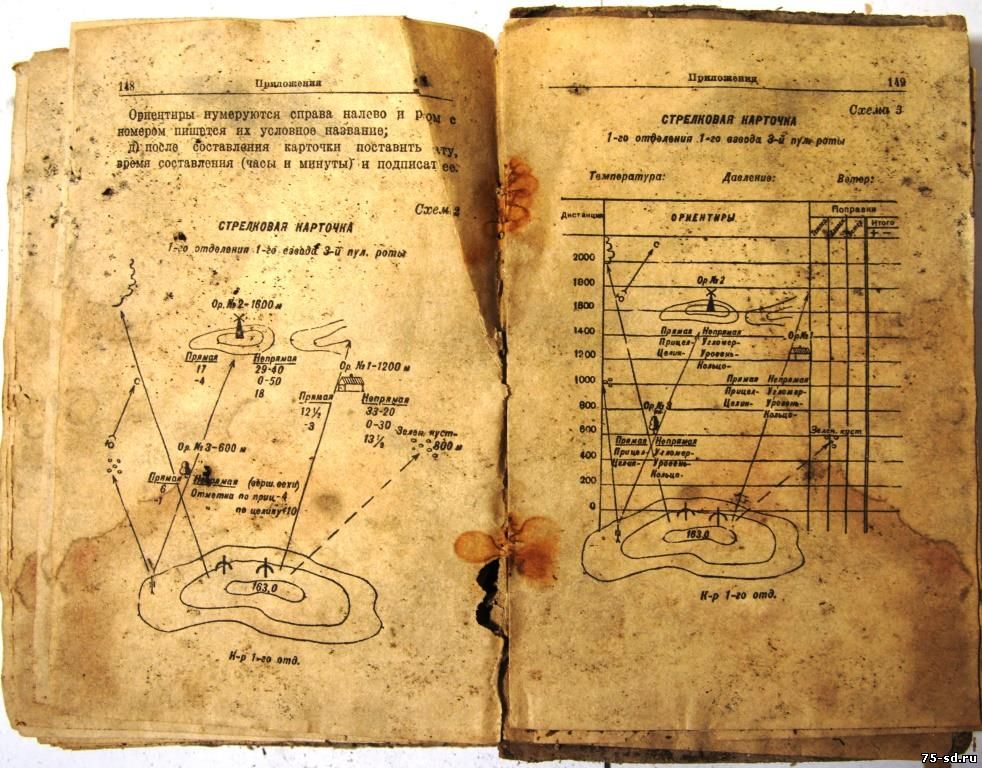 148
Приложения
Ориентиры нумеруются справа налево и ром с
номером пишется их условное название;
д) после составления карточки поставить ту,
время составления (часы и минуты) и подписат ее.
Схема 2
СТРЕЛКОВАЯ КАРТОЧКА
1-го отделения 1-го взвода 3-й пул. роты
Ор. № 2-1600 м
Прямая Непрямая
17 29-40
-4 0-50
18
Ор. № 1-1200 м
Прямая Непрямая
12 ½ 33-20
-3 0-30
13 ½
Зелен. куст-
800 м
Ор. № 3-600 м
Прямая Непрямая (верш. вехи)
6 Отметка по приц-4
по целику 10
163,0
К-р 1-го отд.
Приложения
149
Схема 3
СТРЕЛКОВАЯ КАРТОЧКА
1-го отделения 1-го взвода 3-й пул. роты
Температура: Давление: Ветер:
Дистанция ОРИЕНТИРЫ Поправки
Итого
+ -
2000
1800
1600
1400
1200
1000
800
600
400
200
0
Ор. № 2
Прямая Непрямая
Прицел- Угломер-
Целик- Уровень-
Кольцо-
Ор. № 1
Прямая Непрямая
Прицел- Угломер-
Целик- Уровень-
Кольцо-
Ор. № 3
Зелен. куст
Прямая Непрямая
Прицел- Угломер-
Целик- Уровень-
Кольцо-
163,0
К-р 1-го отд.
75-sd.ru